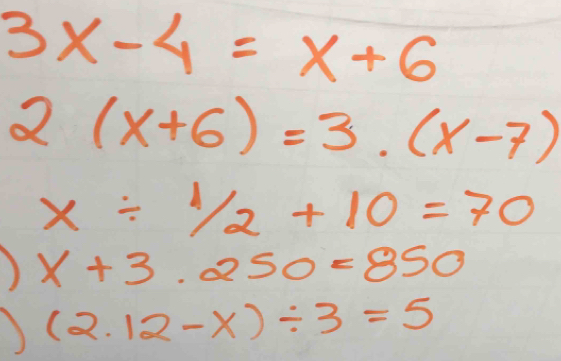 3x-4 = x+6
2 (x+6) = 3 . (x-7)
x ÷ 1/2 + 10 = 70
) x + 3 . 250 = 850
) (2.12-x) ÷ 3 = 5